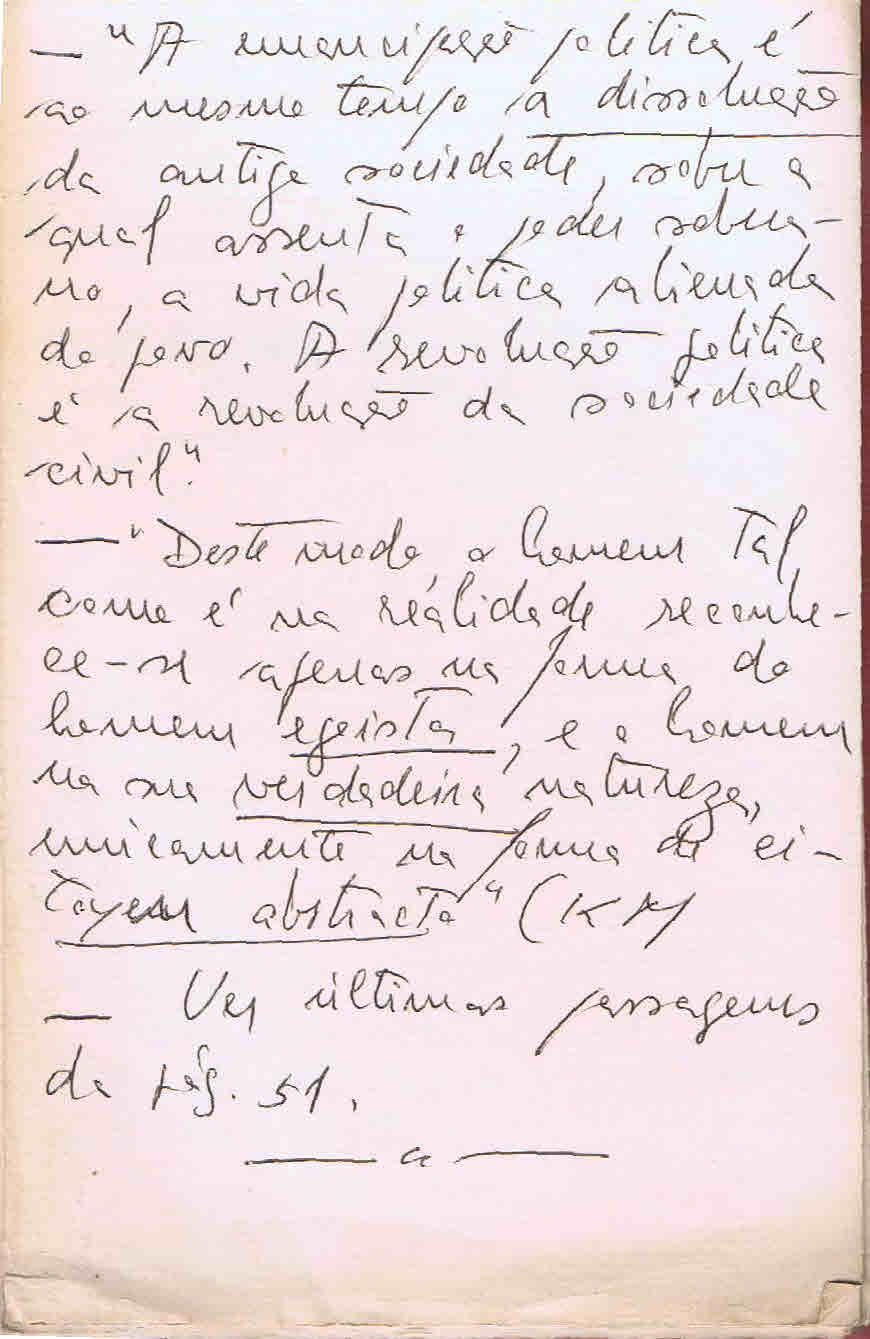 — "A emancipação política é
ao mesmo tempo a dissolução
da antiga sociedade, sobre a
qual assenta o poder sobera-
no, a vida política alienada
do povo. A revolução política
é a revolução da sociedade
civil".
— "Deste modo, o homem tal
como é na realidade reconhe-
ce-se apenas na forma do
homem egoista, e o homem
na sua verdadeira natureza,
unicamente na forma de ci-
toyen abstracto" (KM
— Ver últimas passagens
da pág. 51.